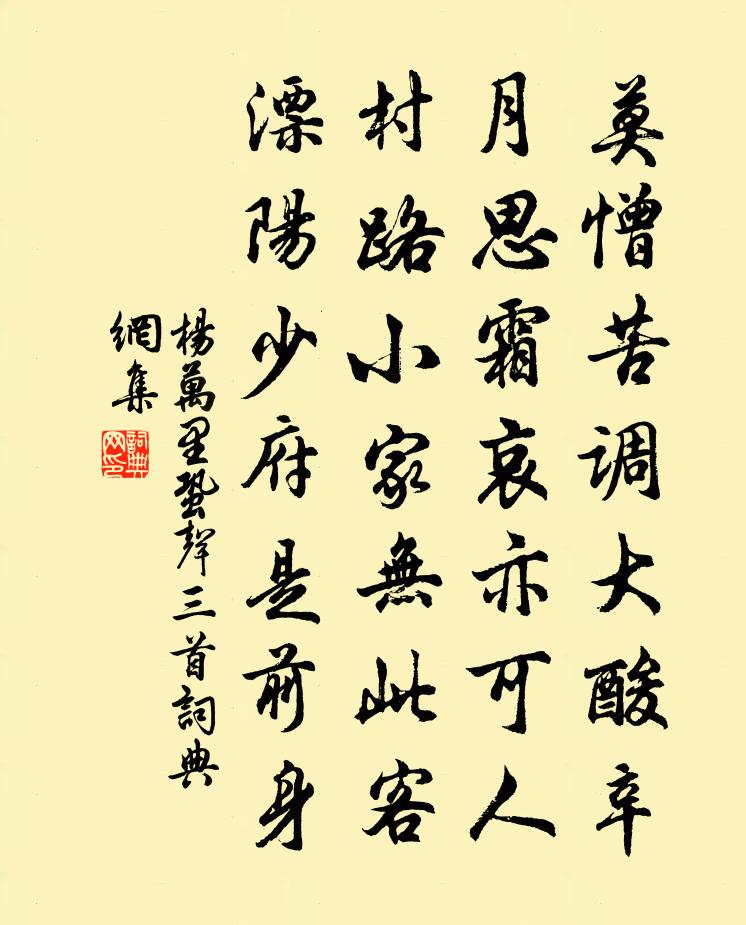 莫憎苦调大酸辛
月思霜哀亦可人
村路小家無此客
溧陽少府是前身
楊萬里蛩聲三首詞典
網集
詞典
网印